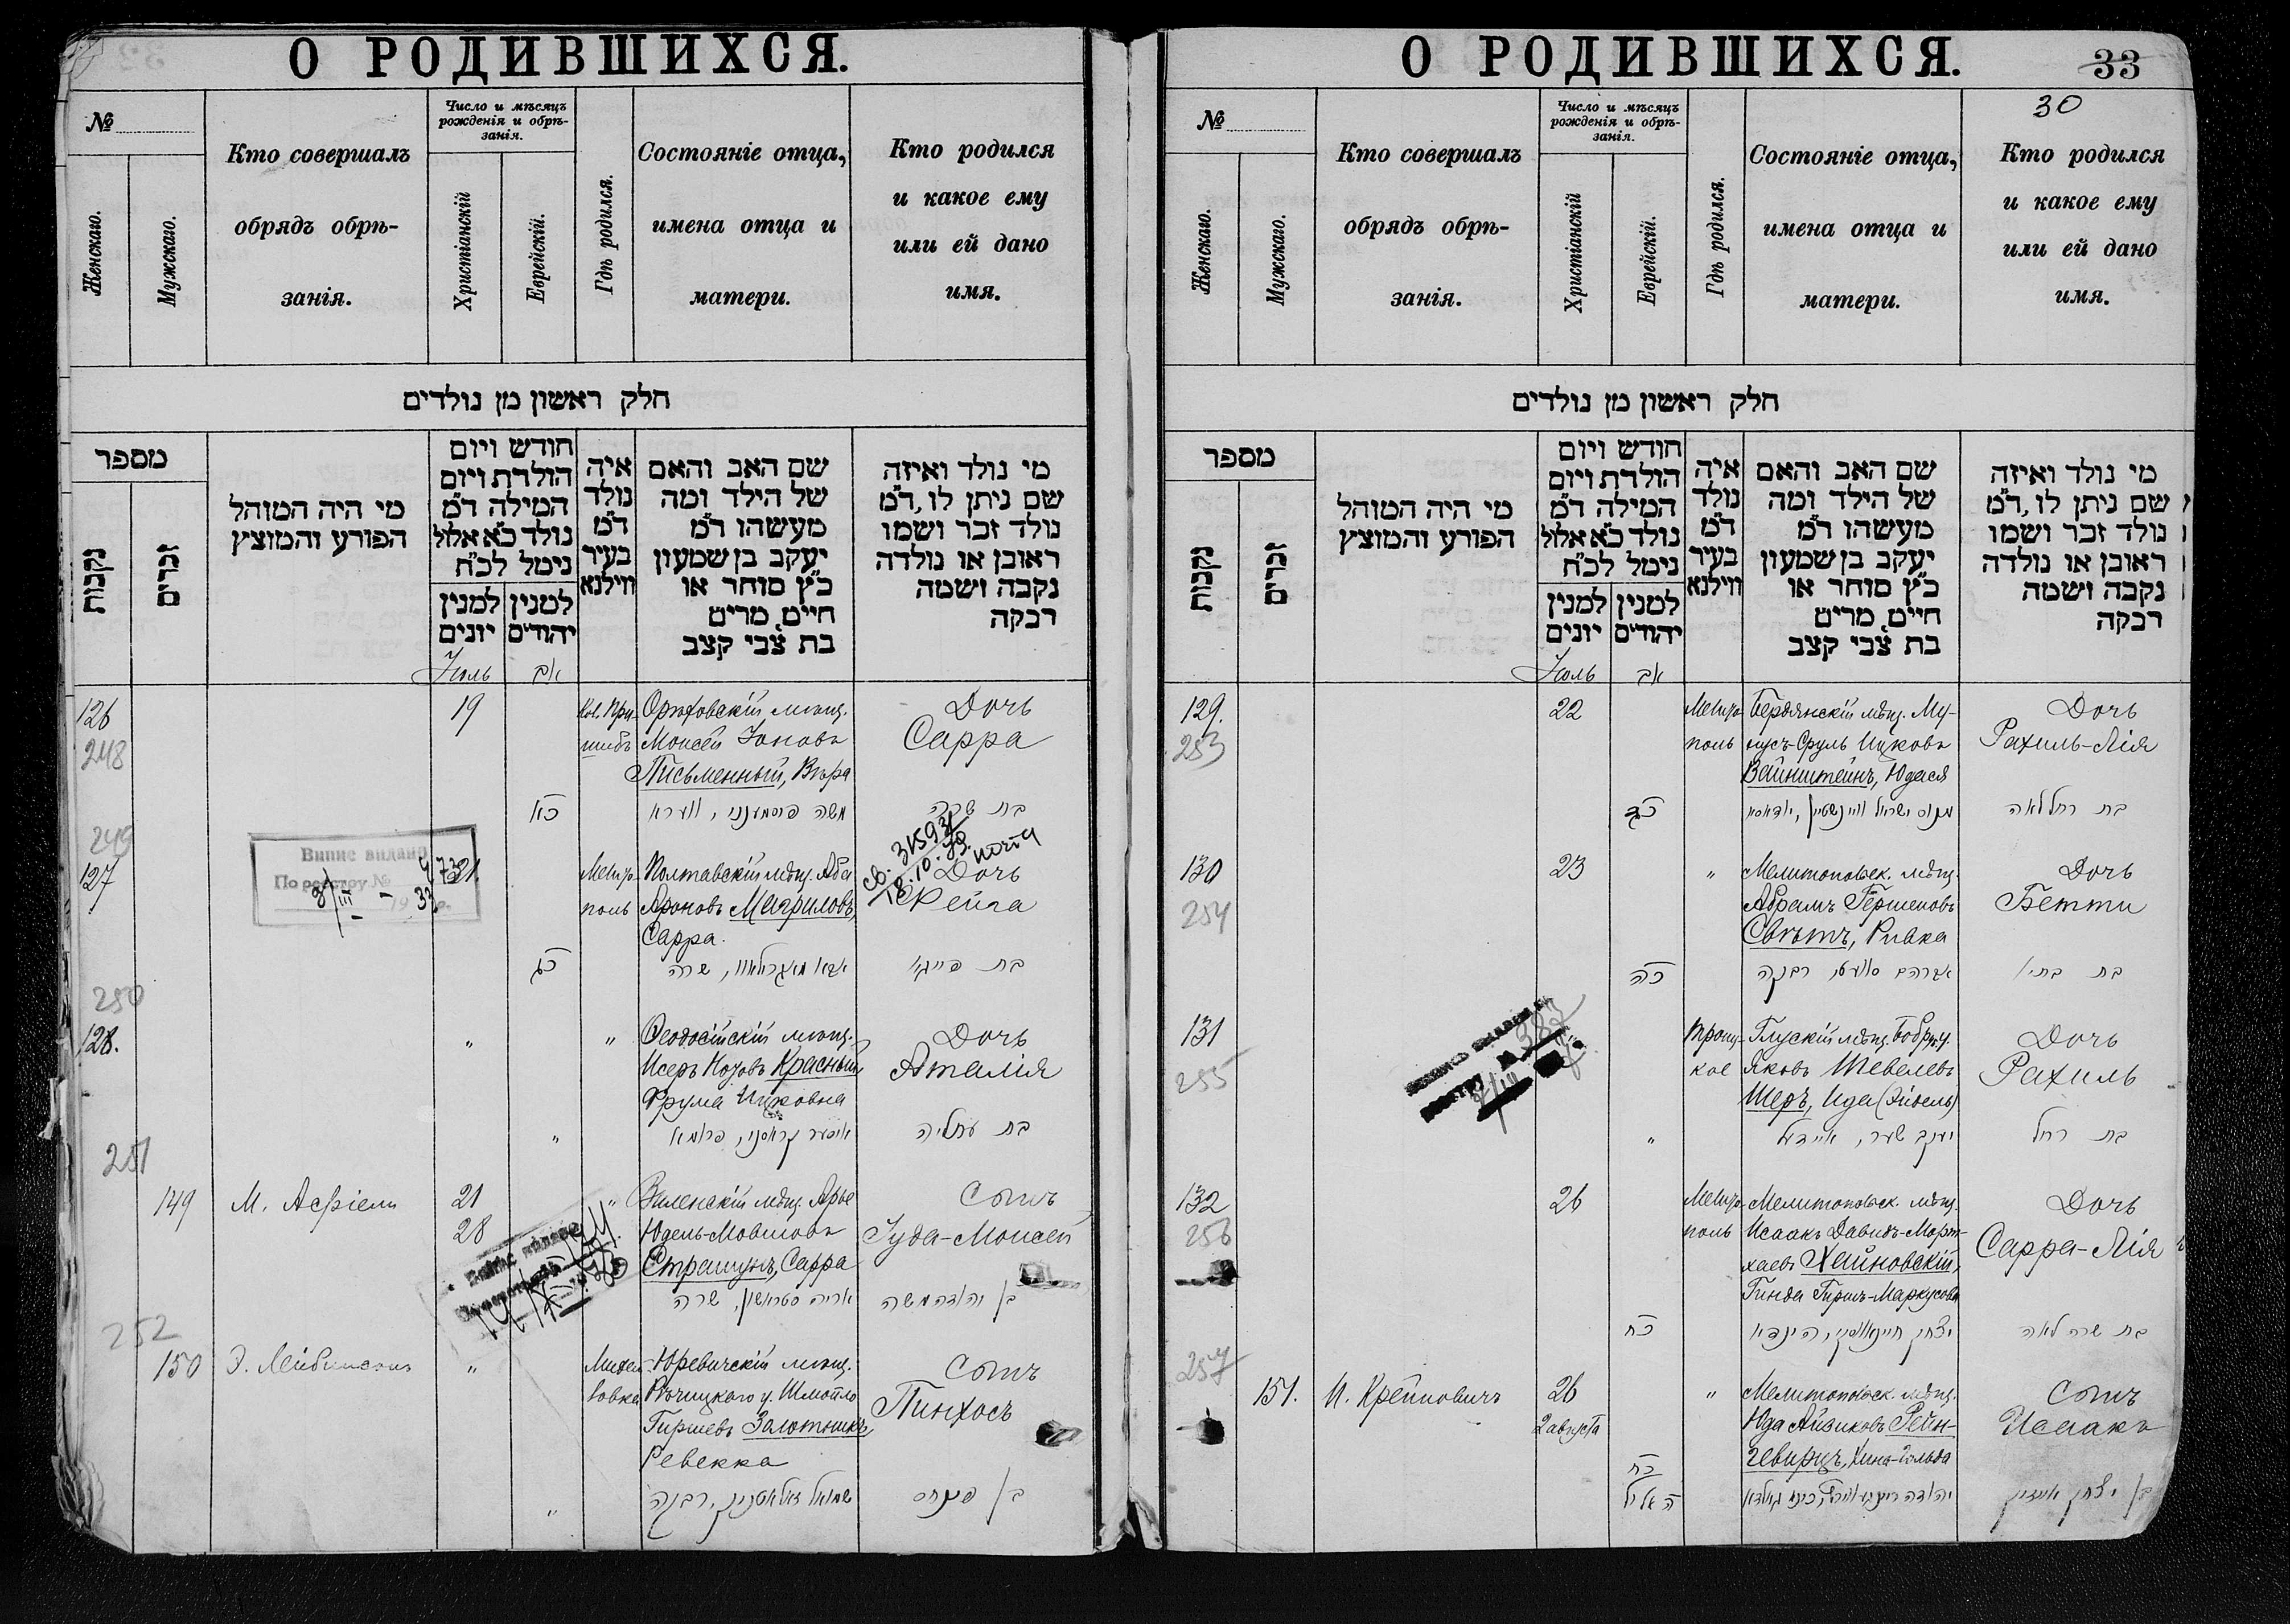 О РОДИВШИХСЯ.
№
Женскаго.
Мужскаго.
Кто совершалъ
обрядъ обрѣ-
занія.
Число и мѣсяцъ
рожденія и обрѣ-
занія.
Христіанскій
Еврейскій.
Гдѣ родился.
Состояніе отца,
имена отца и
матери.
Кто родился
и какое ему
или ей дано
имя.
חלק ראשון מן נולדים
מספר
נקבות
זכרים
מי היה המוהל
הפורע והמוצץ
חודש ויום
הולדת ויום
המילה ד״מ
נולד כ״א אלול
נימל לכ״ח
למנין
יונים
למנין
יהודים
איה
נולד
ד״מ
בעיר
ווילנא
שם האב והאם
של הילד ומה
מעשהו ד״מ
יעקב בן שמעון
כ״ץ סוחר או
חיים, מרים
בת צבי קצב
מי נולד ואיזה
שם ניתן לו, ד״מ
נולד זכר ושמו
ראובן או נולדה
נקבה ושמה
רבקה
Іюль
אב
126
248
19
Кол. При-
шибъ
Орѣховскій мѣщ.
Моисей Іоновъ
Письменный, Вѣра
Дочь
Сарра
כא
משה פיסמענני, ווערא
בת שרה
249
127
Випис видано
По реестру №
21.
Мелито-
поль
Полтавскій мѣщ. Аба
Ароновъ Магриловъ,
Сарра.
св. 31593
18.10.79. почта
Дочь
Фейга
כג
אבא מאגרילאוו, שרה
בת פייגא
250
128.
"
"
Ѳеодосійскій мѣщ.
Исеръ Нозовъ Красный,
Фрума Ицковна
Дочь
Аталія
"
איסער קראסני, פרומא
בת עתליה
251
149
М. Асріели
21
28
"
Виленскій мѣщ. Арье
Юдель-Мовшовъ
Страшунъ, Сарра
Сынъ
Іуда-Моисей
אריה סטראשון, שרה
בן יהודה משה
252
150
Э. Лейбинсонъ
"
Михай-
ловка
Юревичскій мѣщ.
Рѣчицкаго у. Шмойло
Гиршевъ Золотникъ,
Ревекка
Сынъ
Пинхосъ
"
שמואל זאלאטניק, רבקה
בן פינחס
О РОДИВШИХСЯ.
33
30
№
Женскаго.
Мужскаго.
Кто совершалъ
обрядъ обрѣ-
занія.
Число и мѣсяцъ
рожденія и обрѣ-
занія.
Христіанскій
Еврейскій.
Гдѣ родился.
Состояніе отца,
имена отца и
матери.
Кто родился
и какое ему
или ей дано
имя.
חלק ראשון מן נולדים
מספר
נקבות
זכרים
מי היה המוהל
הפורע והמוצץ
חודש ויום
הולדת ויום
המילה ד״מ
נולד כ״א אלול
נימל לכ״ח
למנין
יונים
למנין
יהודים
איה
נולד
ד״מ
בעיר
ווילנא
שם האב והאם
של הילד ומה
מעשהו ד״מ
יעקב בן שמעון
כ״ץ סוחר או
חיים, מרים
בת צבי קצב
מי נולד ואיזה
שם ניתן לו, ד״מ
נולד זכר ושמו
ראובן או נולדה
נקבה ושמה
רבקה
Іюль
אב
129.
253
22
Мелито-
поль
Бердянскій мѣщ. Му-
нусъ-Сруль Ицковъ
Вайнштейнъ, Юдася
Дочь
Рахиль-Лія
כד
מנוס ישראל וויינשטיין, יודאסיא
בת רחל לאה
130
254
23
"
Мелитопольск. мѣщ.
Абрамъ Гершеновъ
Свѣтъ, Ривка
Дочь
Бетти
כה
אברהם סוועט, רבקה
בת בתיא
131
255
Троиц-
кое
Глускій мѣщ. Бобр. у.
Яковъ Шевелевъ
Шеръ, Ида (Эйдель)
Дочь
Рахиль
"
יעקב שער, איידל
בת רחל
132
256
26
Мелито-
поль
Мелитопольск. мѣщ.
Исаакъ Давидъ-Морт-
хаевъ Хайновскій,
Гинда Гиршъ-Маркусовна
Дочь
Сарра-Лія
כח
יצחק חיינאווסקי, הינדא
בת שרה לאה
257
151.
И. Крейновичъ
26
2 августа
"
Мелитопольск. мѣщ.
Юда Айзиковъ Рейн-
гевирцъ, Хина-Гольда
Сынъ
Исаакъ
כח
ה אלול
יהודה ריינגעווירץ, חינא גאלדא
בן יצחק אייזיק